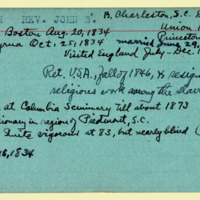 REV. JOHN B. B. Charleston, S.C. D
Union
Boston Aug. 20, 1834 Princeton
Smyrna Oct. 25, 1834 married June 29,
Visited England July-Dec.
Ret. U.S.A., fall of 1846, & resign
religious work among the slav
at Columbia Seminary till about 1873
sionary in region of Piedmont, S.C.
Quite vigorous at 83, but nearly blind (
16, 1834